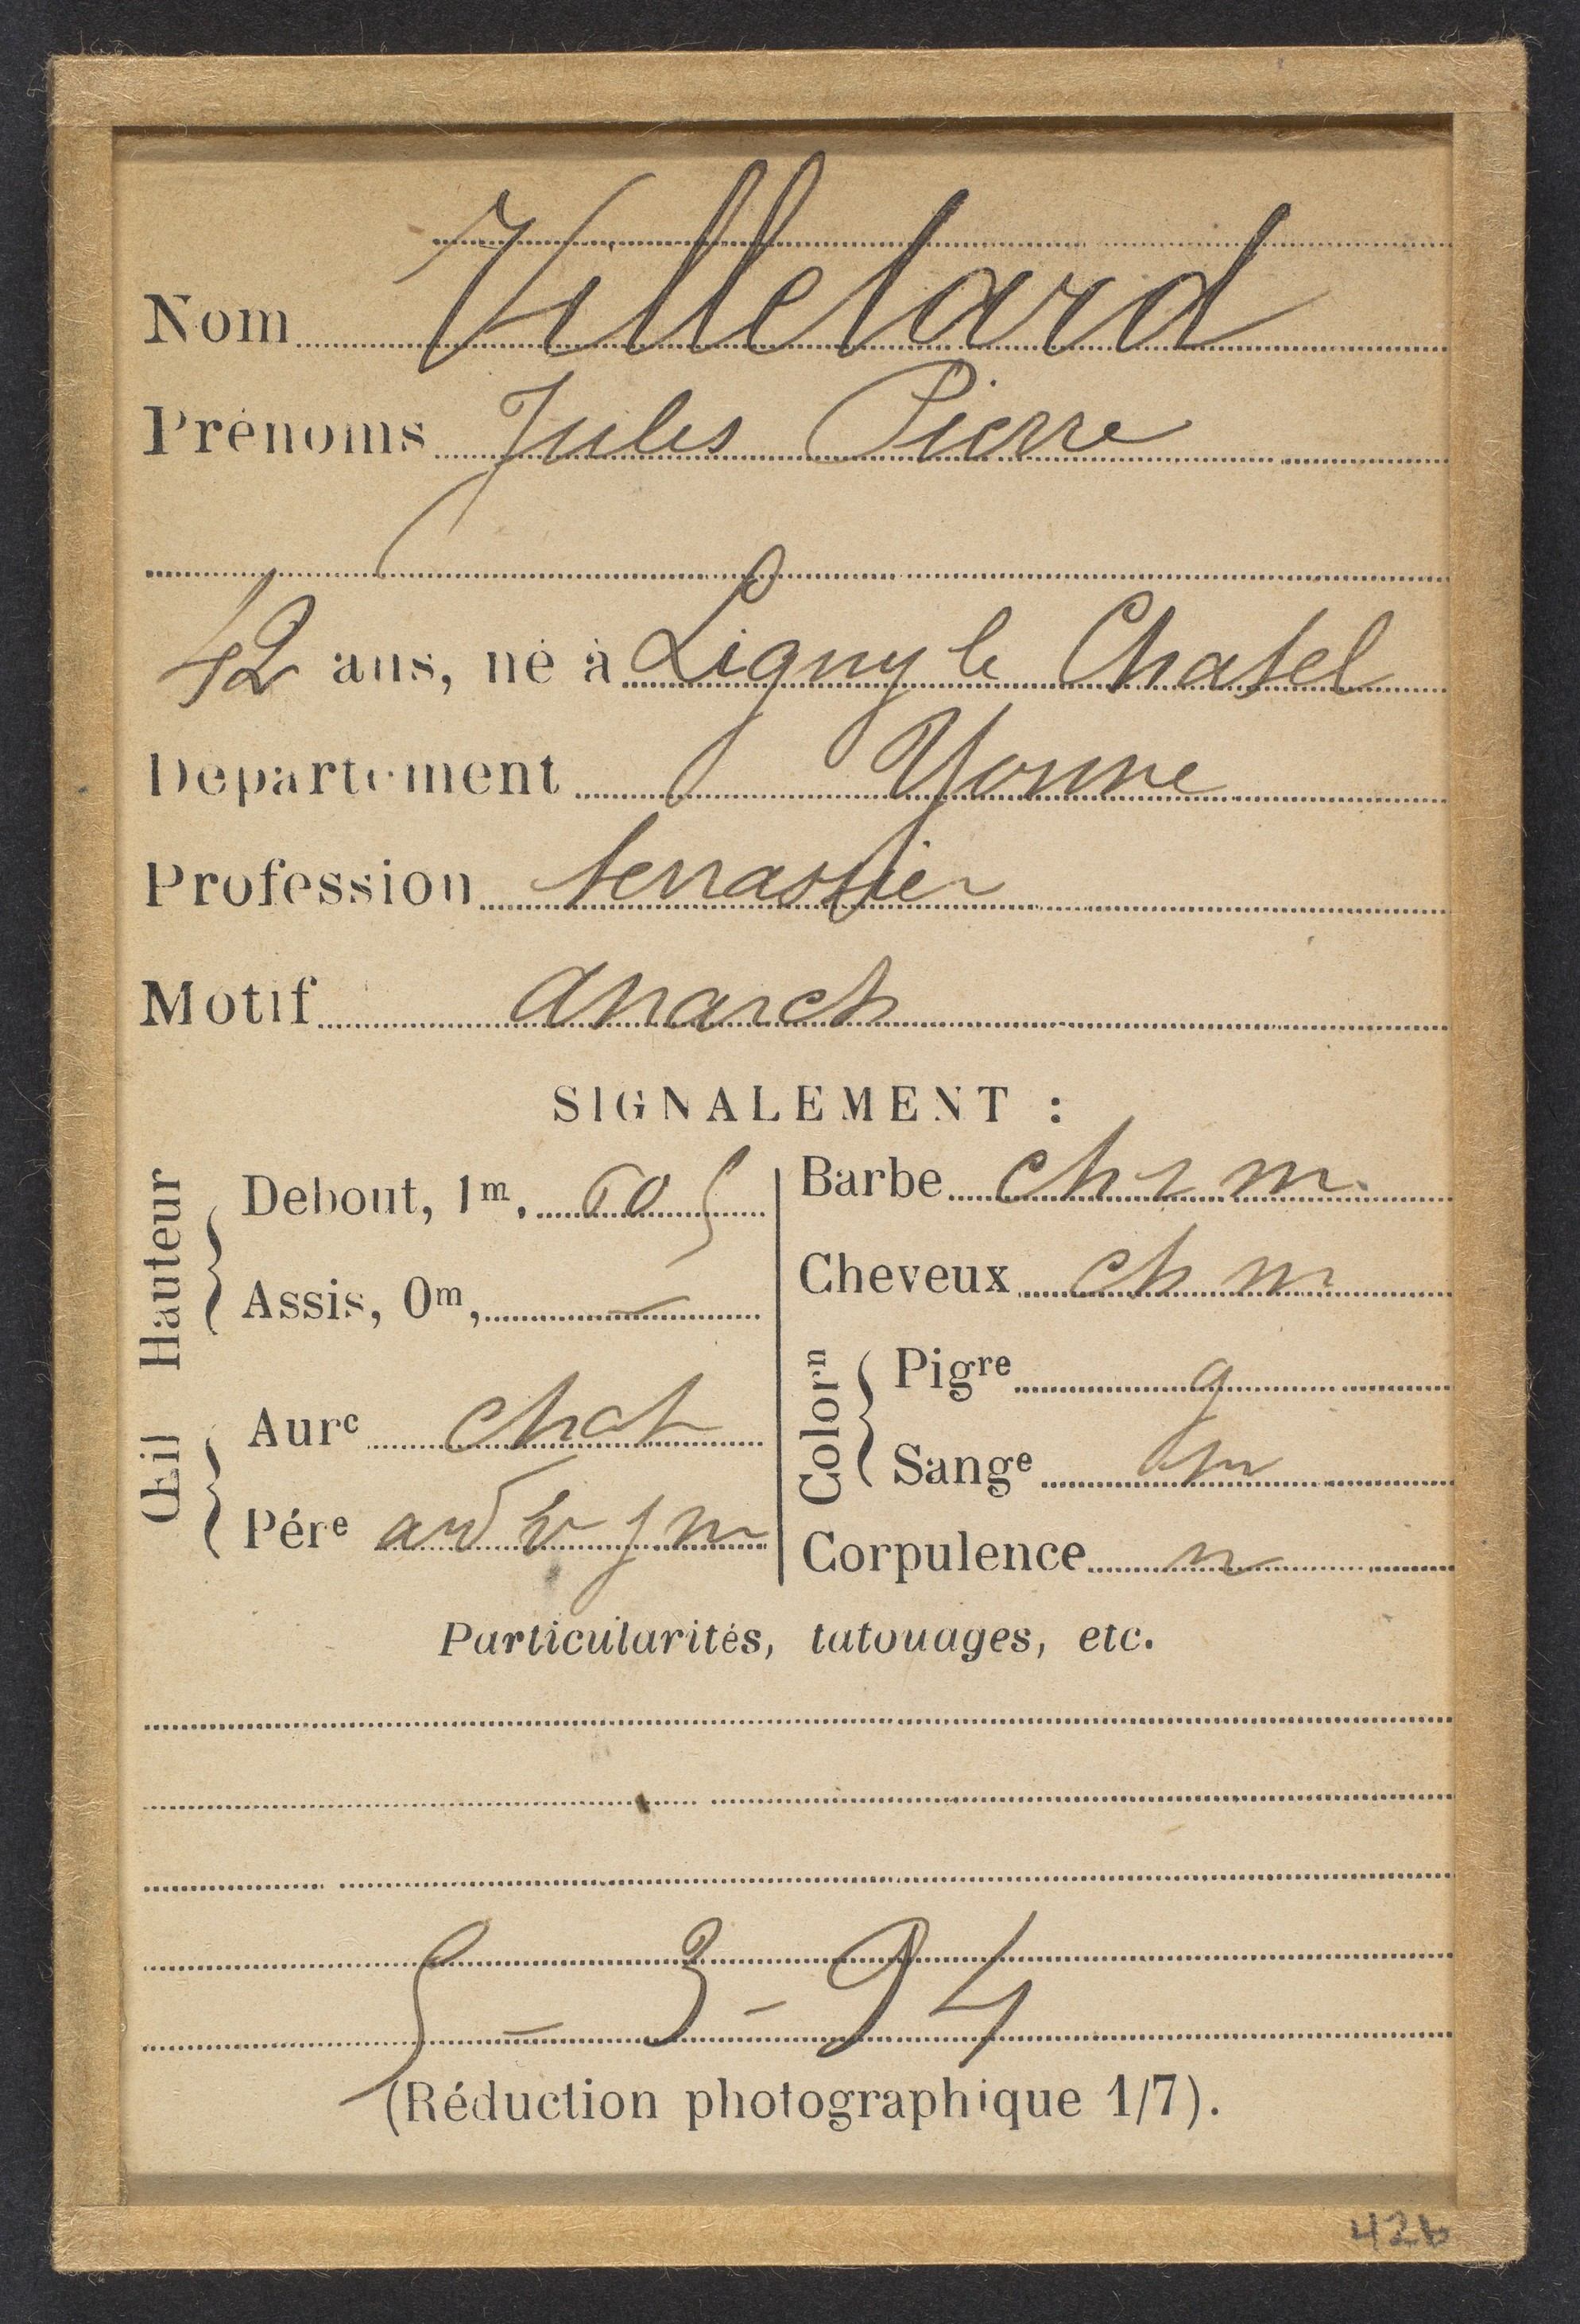 Nom Villetard
Prénoms Jules Pierre
42 ans, né à Ligny le Chatel
Département Yonne
Profession terrassier
Motif anarch
SIGNALEMENT :
Hauteur
Debout, 1m, 60 5
Assis, 0m, —
Œil
Aure chat
Pére ard v j m
Barbe ch r m.
Cheveux ch m
Colorn
Pigre g
Sange m
Corpulence n
Particularités, tatouages, etc.
5 - 3 - 94
(Réduction photographique 1/7).
42b